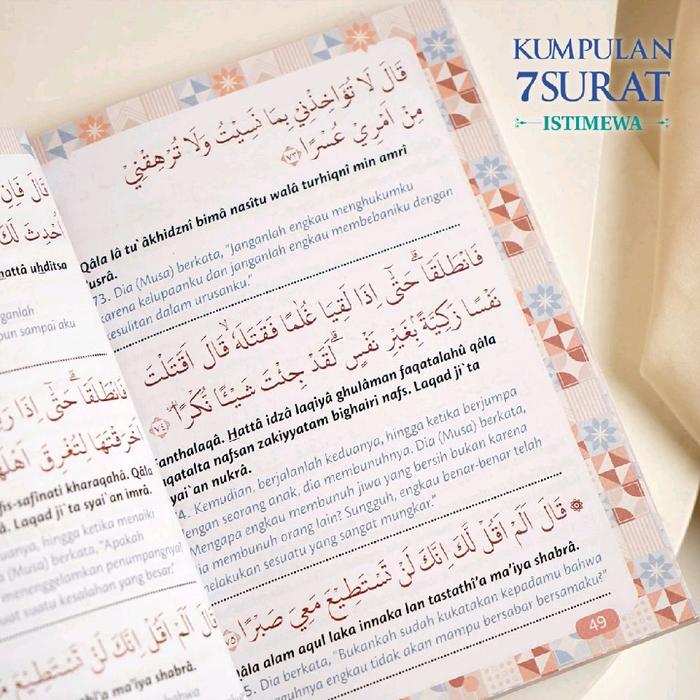 KUMPULAN
7SURAT
ISTIMEWA
قَالَ لَا تُؤَاخِذْنِيْ بِمَا نَسِيْتُ وَلَا تُرْهِقْنِيْ
مِنْ اَمْرِيْ عُسْرًا ﴿٧٣﴾
Qâla lâ tu`âkhidznî bimâ nasîtu walâ turhiqnî min amrî
'usrâ.
73. Dia (Musa) berkata, "Janganlah engkau menghukumku
karena kelupaanku dan janganlah engkau membebaniku dengan
kesulitan dalam urusanku."
فَانْطَلَقَا ۗ حَتّٰٓى اِذَا لَقِيَا غُلٰمًا فَقَتَلَهٗ ۙ قَالَ اَقَتَلْتَ
نَفْسًا زَكِيَّةً ۢ بِغَيْرِ نَفْسٍ ۗ لَقَدْ جِئْتَ شَيْـًٔا نُّكْرًا ﴿٧٤﴾
Fanthalaqâ. Hattâ idzâ laqiyâ ghulâman faqatalahû qâla
aqatalta nafsan zakiyyatam bighairi nafs. Laqad ji`ta
syai`an nukrâ.
74. Kemudian, berjalanlah keduanya, hingga ketika berjumpa
dengan seorang anak, dia membunuhnya. Dia (Musa) berkata,
"Mengapa engkau membunuh jiwa yang bersih bukan karena
dia membunuh orang lain? Sungguh, engkau benar-benar telah
melakukan sesuatu yang sangat mungkar."
۞ قَالَ اَلَمْ اَقُلْ لَّكَ اِنَّكَ لَنْ تَسْتَطِيْعَ مَعِيَ صَبْرًا
Qâla alam aqul laka innaka lan tastathî'a ma'iya shabrâ.
75. Dia berkata, "Bukankah sudah kukatakan kepadamu bahwa
engkau tidak akan mampu bersabar bersamaku?"
49
قَالَ فَاِنِ
اُحْدِثَ لَكَ
hattâ uhditsa
anganlah
pun sampai aku
فَانْطَلَقَا ۗ حَتّٰٓى اِذَا
اَخَرَقْتَهَا لِتُغْرِقَ اَهْلَهَا
fis-safînati kharaqahâ. Qâla
â. Laqad ji`ta syai`an imrâ.
keduanya, hingga ketika menaiki
a (Musa) berkata, "Apakah
menenggelamkan penumpangnya?
suatu kesalahan yang besar."
قَالَ اَلَمْ اَقُلْ اِنَّكَ لَنْ تَسْتَطِيْعَ
thî'a ma'iya shabrâ.